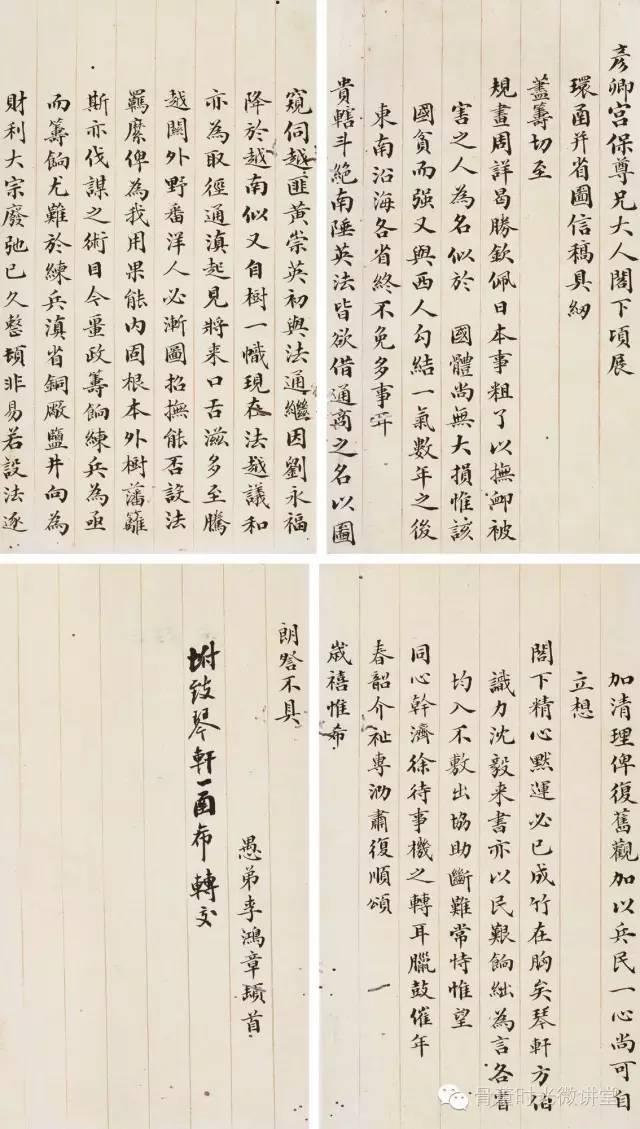 彥卿宮保尊兄大人閣下頃展
環函并省圖信稿具紉
藎籌切至
規畫周詳曷勝欽佩日本事粗了以撫卹被
害之人為名似於 國體尚無大損惟該
國貧而强又與西人勾結一氣數年之後
東南沿海各省終不免多事耳
貴轄斗絕南陲英法皆欲借通商之名以圖
窺伺越匪黃崇英初與法通繼因劉永福
降於越南似又自樹一幟現在法越議和
亦為取徑通滇起見將來口舌滋多至騰
越關外野番洋人必漸圖招撫能否設法
羈縻俾為我用果能内固根本外樹藩籬
斯亦伐謀之術目今量政籌餉練兵為亟
而籌餉尤難於練兵滇省銅厰鹽井向為
財利大宗廢弛已久整頓非易若設法逐
加清理俾復舊觀加以兵民一心尚可自
立想
閣下精心默運必已成竹在胸矣琴軒方伯
識力沈毅来書亦以民艱餉絀為言各省
均入不敷出協助斷難常恃惟望
同心幹濟徐待事機之轉耳臘鼓催年
春韶介祉專泐肅復順頌
歲禧惟希
朗詧不具
愚弟李鴻章頓首
坿致琴軒一函希轉交
骨董时光微讲堂